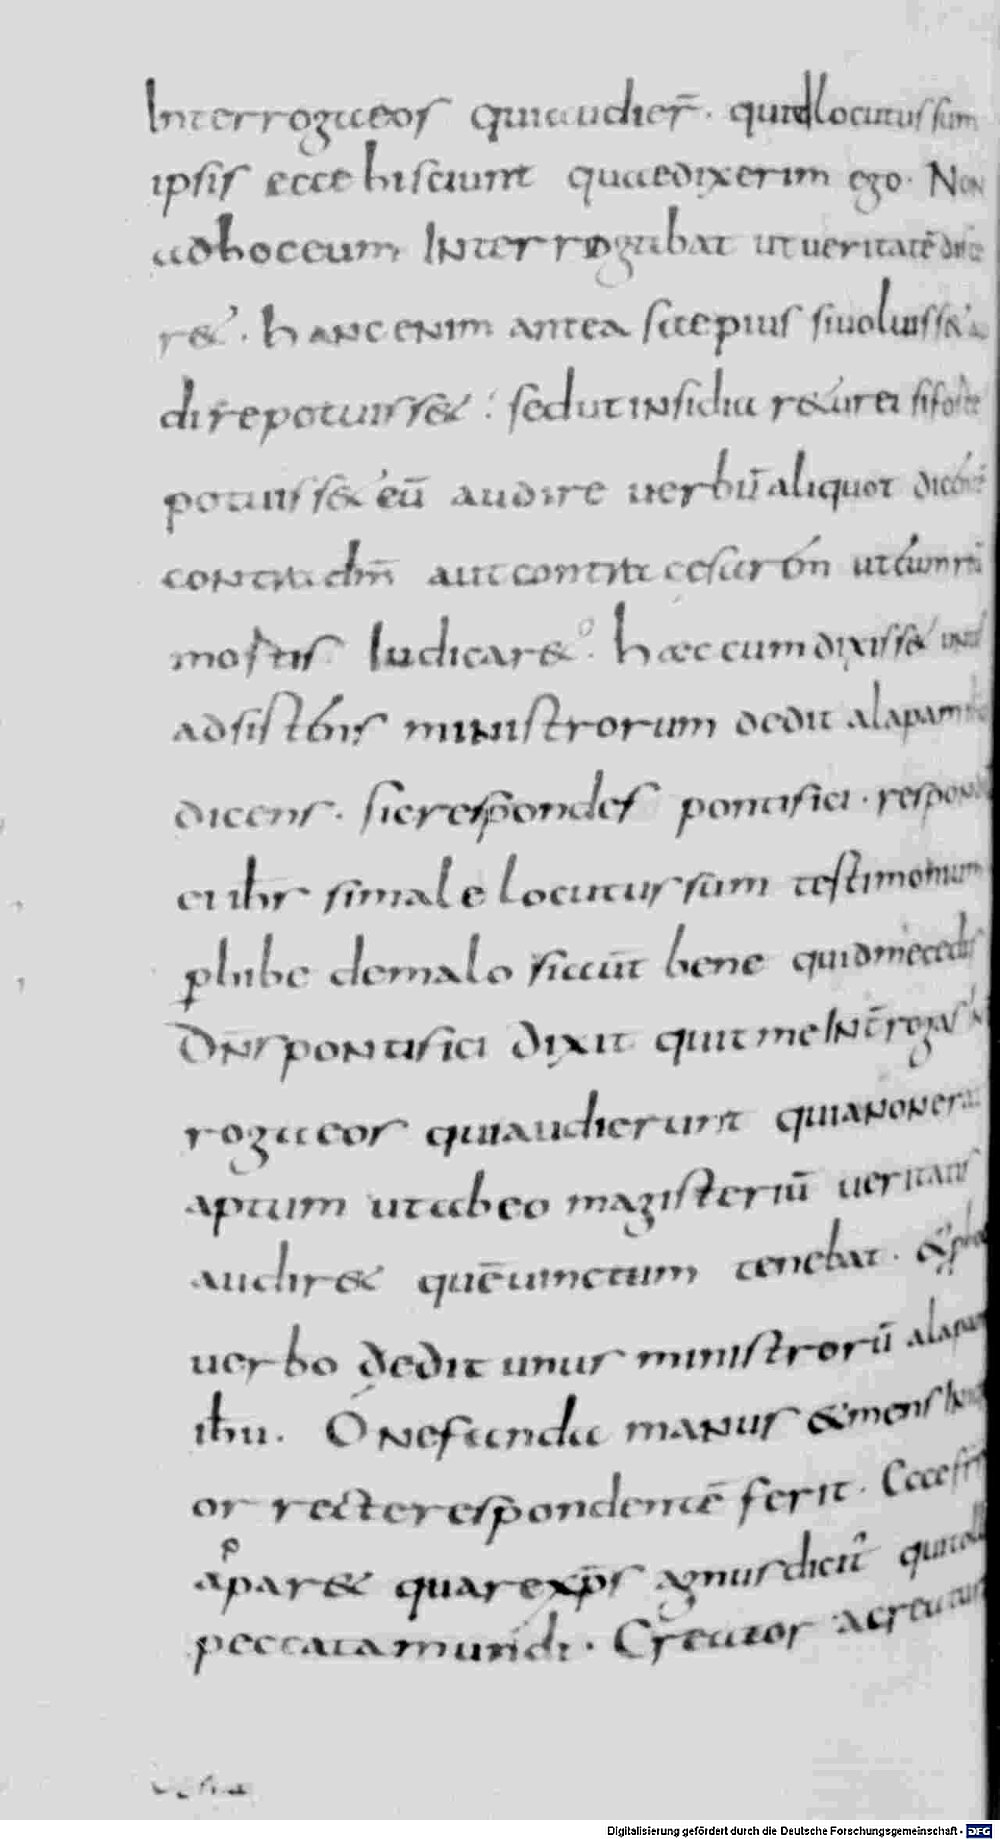 Interrogaeos quiaudier̄. quidlocutussum
ipsis ecce hisciunt quaedixerim ego. Non
adhoceum Interrogabat utueritatē disce
r&. hancenim antea saepius siuoluiss& au
direpotuiss&: sedutinsidiar&urei siforte
potuiss& eū audire uerbū aliquot
contra dm̄ aut contra cesarem
mortis Iudicar&. haeccumdixiss& unus
adsistens ministrorum dedit alapam
dicens. sicrespondes pontifici. respondit
ei ihs simale locutussum testimonium
phibe demalo siaut̄ bene quidmecedis
Dn̄spontifici dixit quitmeInt̄rogas
rogaeos quiaudierunt quianonerat
aptum utabeo magisteriū ueritatis
audir& quēuinctum tenebat. &p
uerbo dedit unus ministrorū alapam
ihu. O nefanda manus &mens
or recterespondentē ferit. Ecce
apar& quarexp̄s agnusdicit̄ quitoll
peccatamundi. Creator acreatur